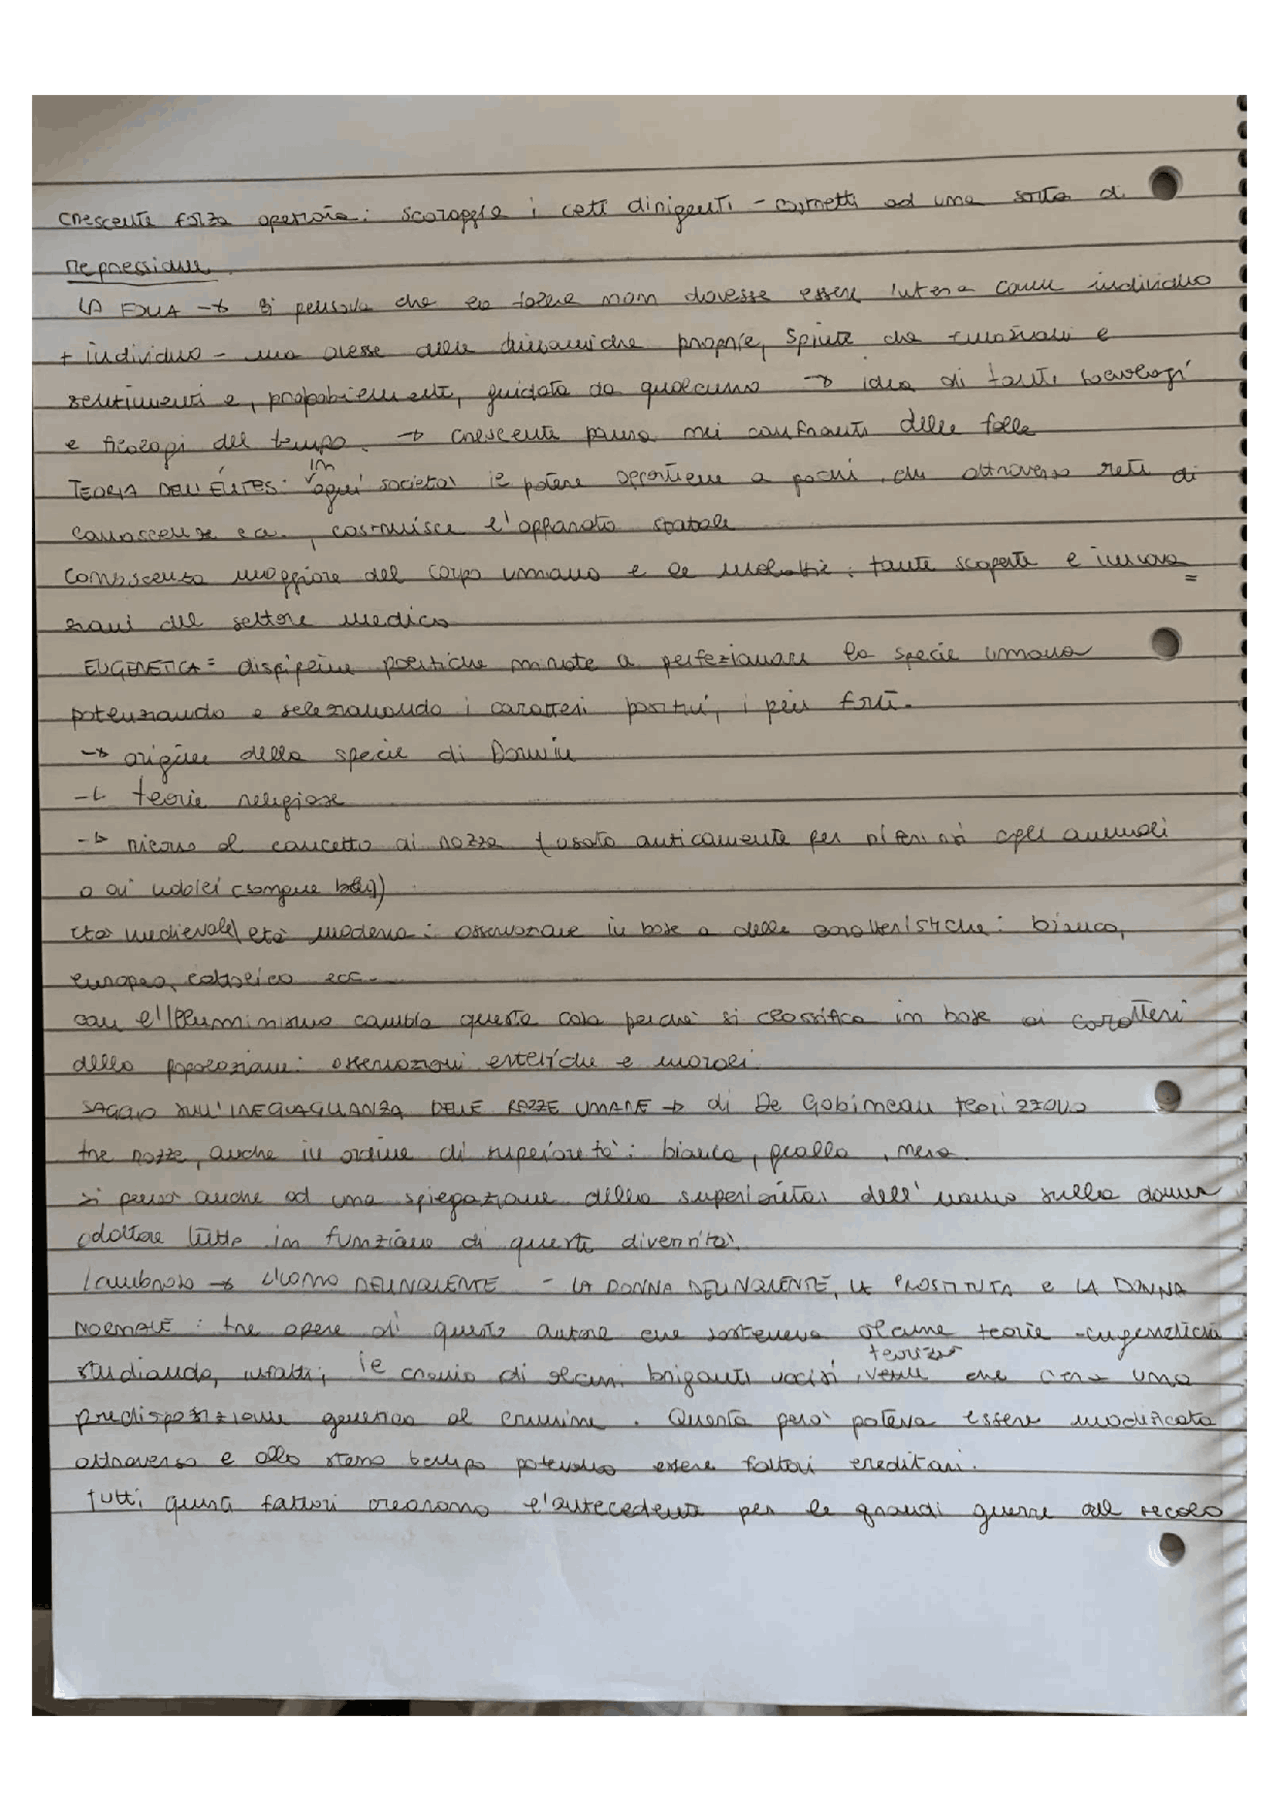 crescente forza operaia: scoraggia i ceti dirigenti - costretti ad una sorta di
repressione
LA FOLLA → si pensava che la folla non dovesse essere intesa come individuo
+ individuo - ma avesse delle dinamiche proprie, spinte da emozioni e
sentimenti e, probabilmente, guidata da qualcuno → idea di tanti sociologi
e psicologi del tempo. → crescente paura nei confronti delle folle
TEORIA DELL'ÉLITES: in ogni società il potere appartiene a pochi, che attraverso reti di
conoscenze ecc., costruisce l'apparato statale
Conoscenza maggiore del corpo umano e le malattie: tante scoperte e innova=
zioni del settore medico
EUGENETICA = discipline politiche mirate a perfezionare la specie umana
potenziando e selezionando i caratteri positivi, i più forti.
→ origine della specie di Darwin
→ teorie religiose
→ ricorso al concetto di razza (usato anticamente per riferirsi agli animali
o ai nobili (sangue blu))
età medievale/età moderna: osservazione in base a delle caratteristiche: bianco,
europeo, cattolico ecc.
con l'Illuminismo cambia questa cosa perché si classifica in base ai caratteri
della popolazione: osservazioni estetiche e morali.
SAGGIO SULL'INEGUAGLIANZA DELLE RAZZE UMANE → di De Gobineau teorizzava
tre razze, anche in ordine di superiorità: bianca, gialla, nera.
si pensò anche ad una spiegazione della superiorità dell'uomo sulla donna
adattare tutto in funzione di questa diversità.
Lombroso → L'UOMO DELINQUENTE - LA DONNA DELINQUENTE, LA PROSTITUTA e LA DONNA
NORMALE: tre opere di questo autore che sosteneva alcune teorie eugenetica
studiando, infatti, il cranio di alcuni briganti uccisi, venne teorizzato che c'era una
predisposizione genetica al crimine. Questa però poteva essere modificata
attraverso e allo stesso tempo potevano essere fattori ereditari.
Tutti questi fattori crearono l'antecedente per le grandi guerre del secolo